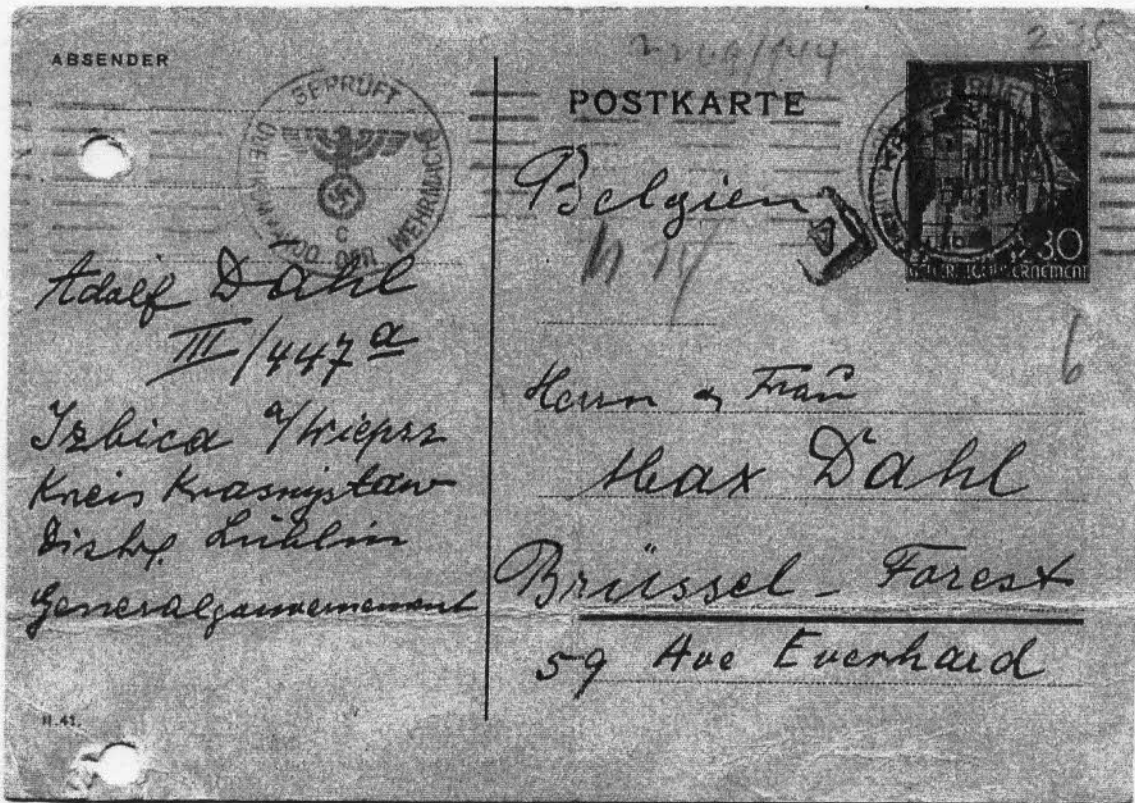 ABSENDER
GEPRÜFT
OBERKOMMANDO DER WEHRMACHT
c
Adolf Dahl
III/447 a
Izbica a/Wieprz
Kreis Krasnystaw
Distr. Lublin
Generalgouvernement
II.41.
POSTKARTE
30
GENERALGOUVERNEMENT
Belgien
Herrn & Frau
Max Dahl
Brüssel - Forest
59 Ave Everhard
6